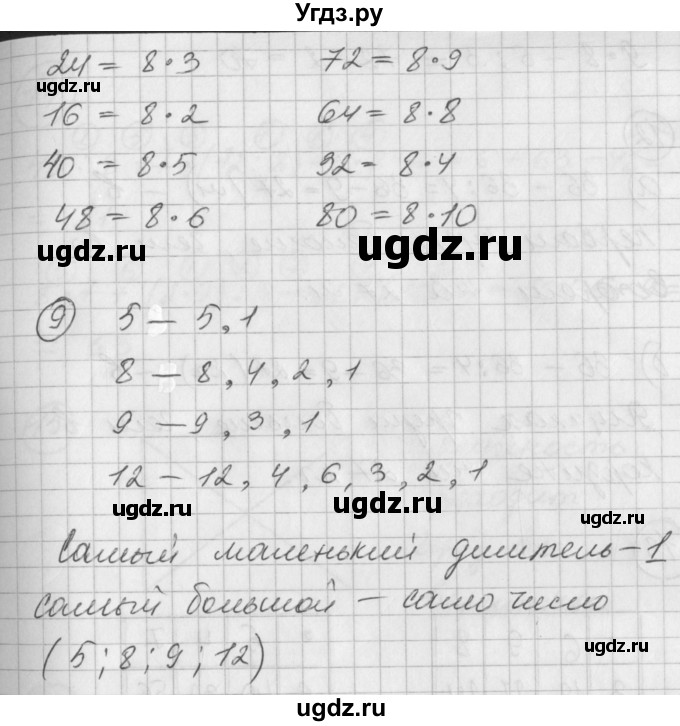 Угдз.ру
24 = 8·3 72 = 8·9
ugdz.ru
16 = 8·2 64 = 8·8
40 = 8·5 32 = 8·4
48 = 8·6 80 = 8·10
ugdz.ru ugdz.ru
9 5 — 5, 1
8 — 8, 4, 2, 1
9 — 9, 3, 1
12 — 12, 4, 6, 3, 2, 1
ugdz.ru ugdz.ru
Самый маленький делитель – 1
самый большой — само число
ugdz.ru ugdz.ru
(5; 8; 9; 12)
ugdz.ru